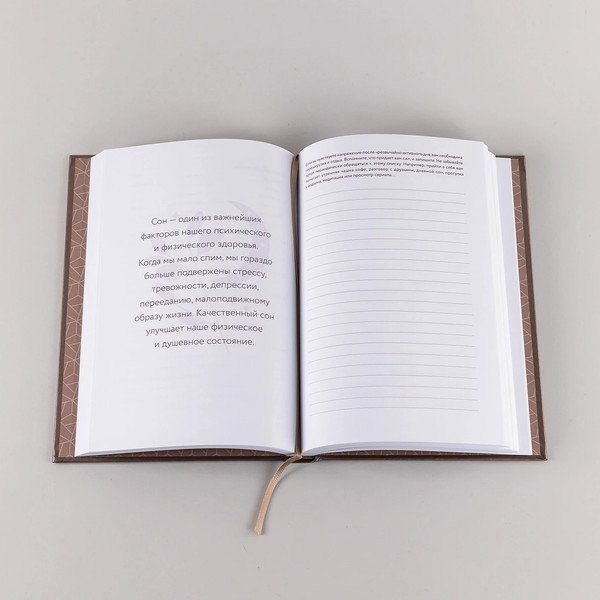 Сон — один из важнейших
факторов нашего психического
и физического здоровья.
Когда мы мало спим, мы гораздо
больше подвержены стрессу,
тревожности, депрессии,
перееданию, малоподвижному
образу жизни. Качественный сон
улучшает наше физическое
и душевное состояние.
Если вы чувствуете напряжение после чрезвычайно активного дня, вам необходима
перезагрузка и отдых. Вспомните, что придает вам сил, и запишите. Не забывайте
периодически обращаться к этому списку. Например, прийти в себя вам
помогает: утренняя чашка кофе, разговор с друзьями, дневной сон, прогулка
медитация или просмотр сериала...